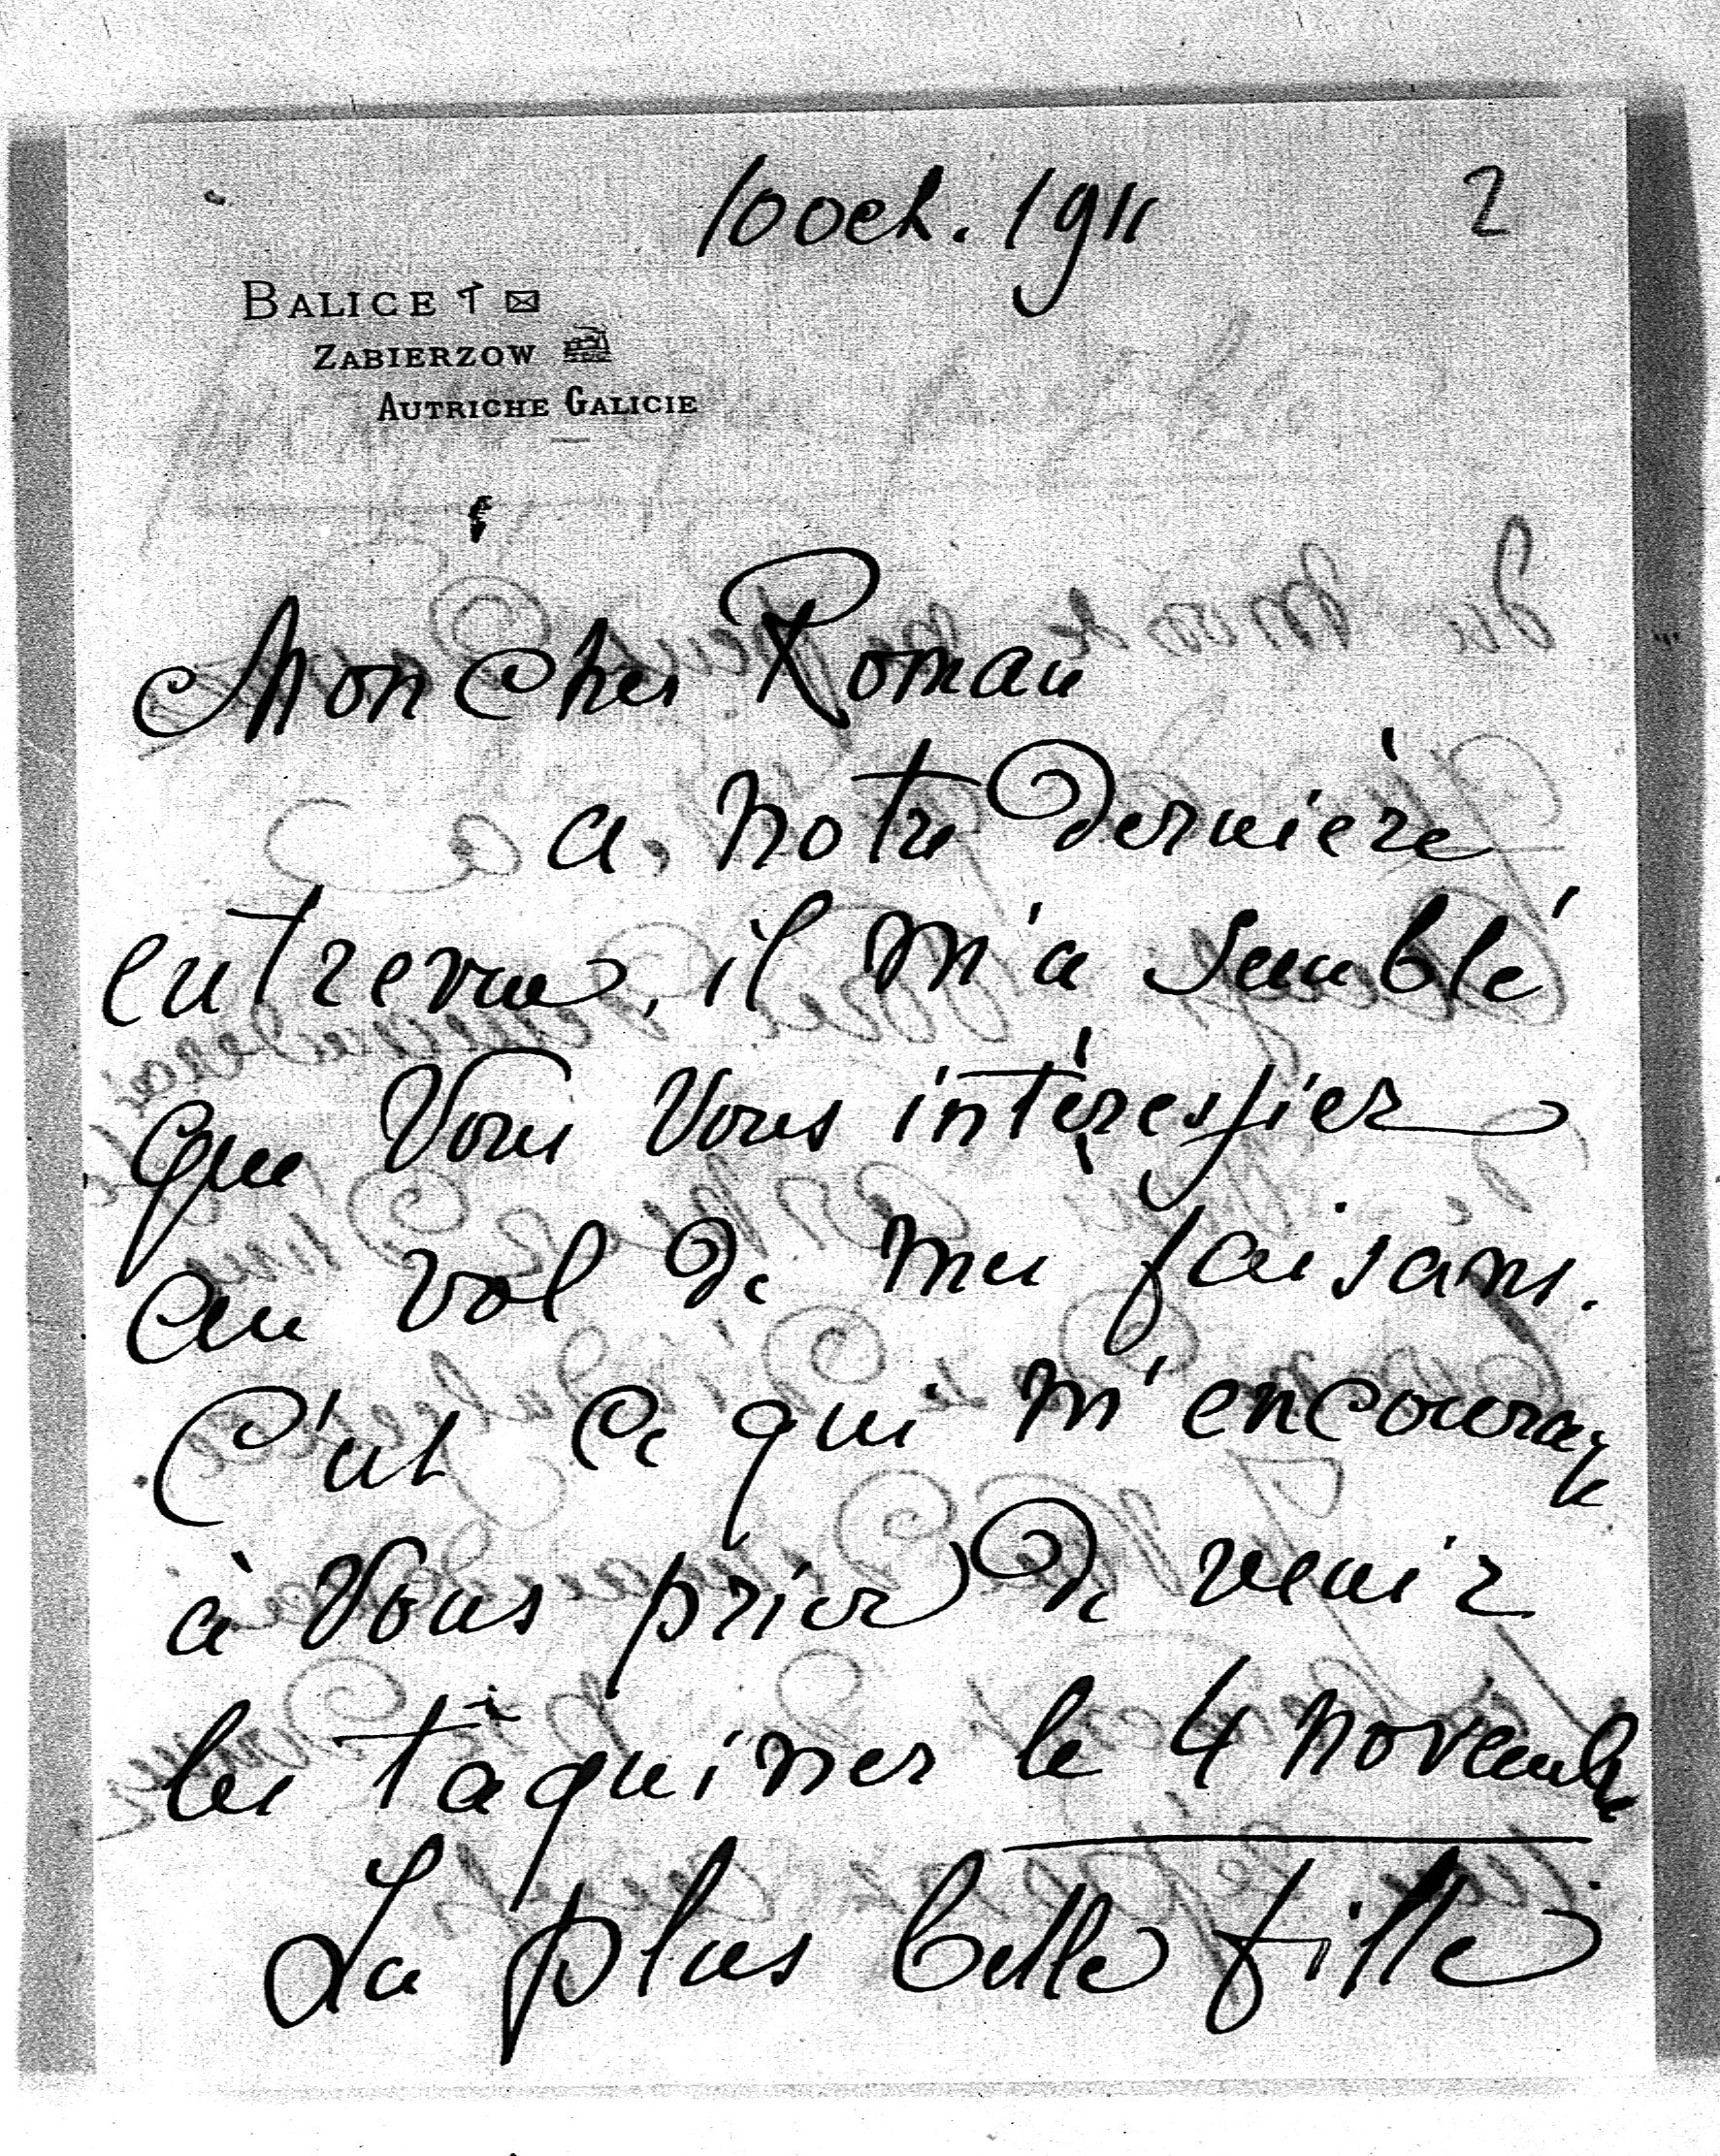 10 oct. 1911 2
BALICE
ZABIERZOW
AUTRICHE GALICIE
Mon cher Roman
a notre dernière
entrevue, il m'a semblé
que vous vous intéressiez
au vol de mes faisans.
C'est ce qui m'encourage
à vous prier de venir
les taquiner le 4 novembre
La plus belle fille